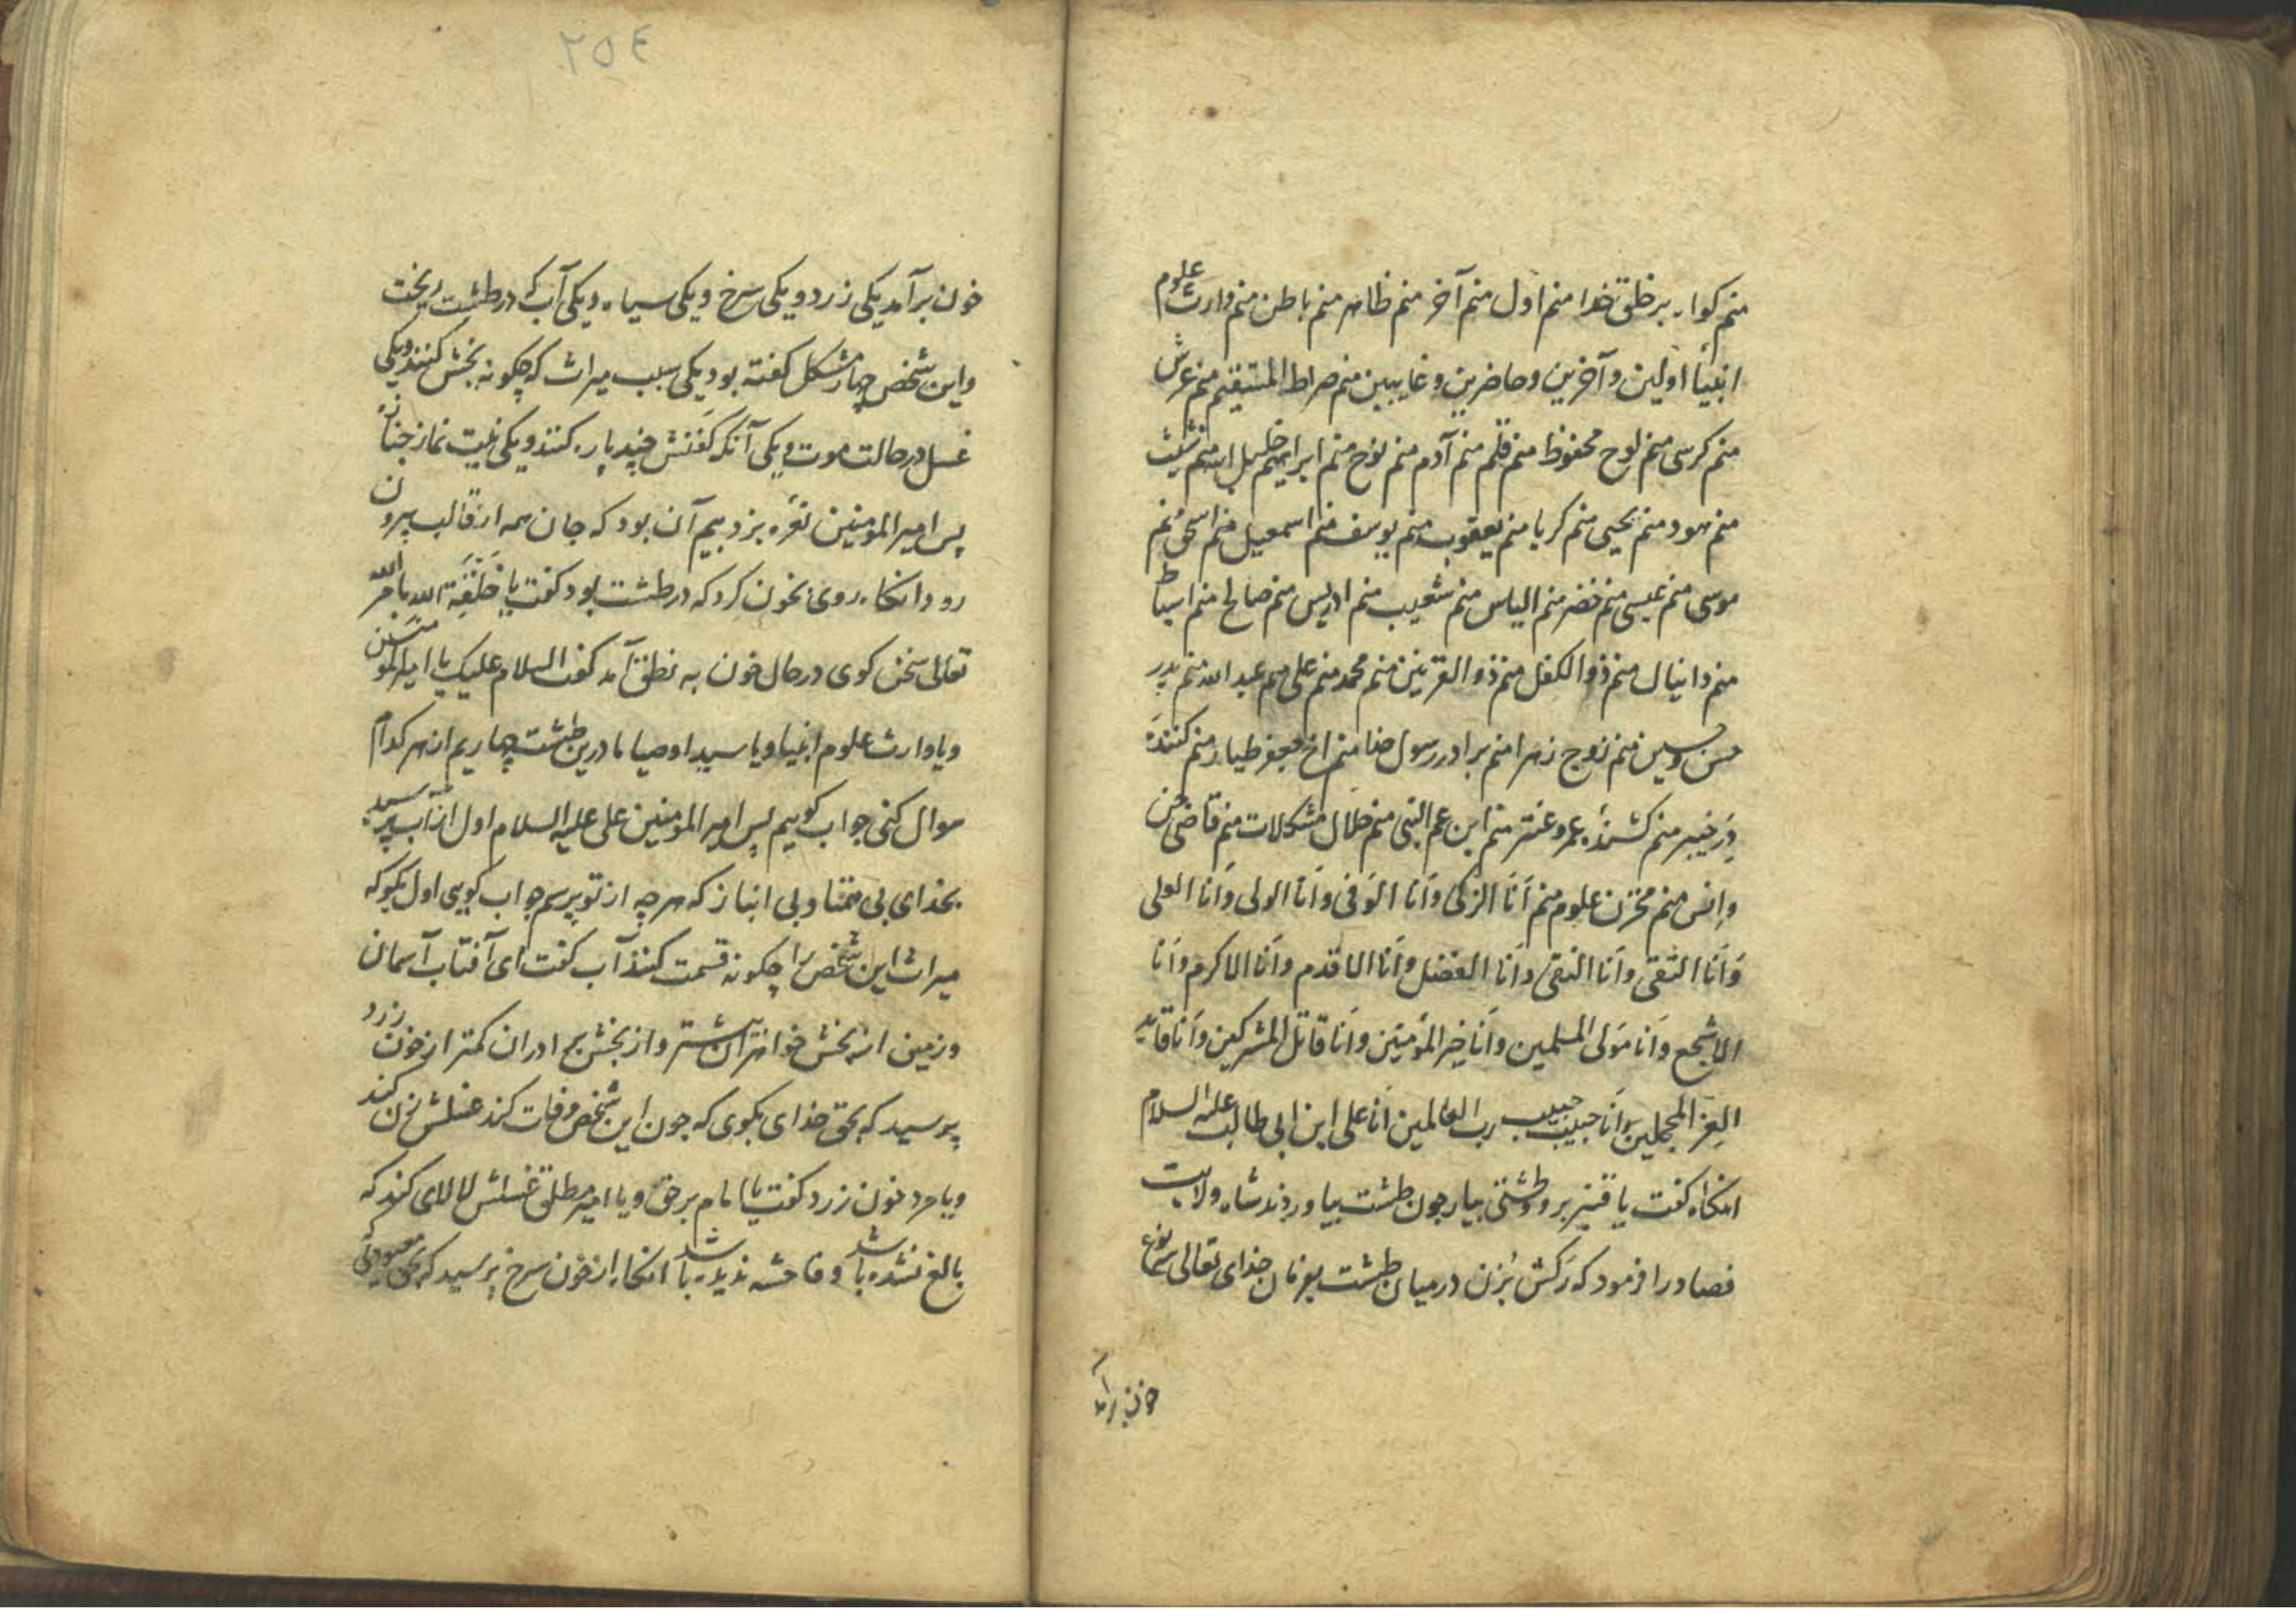 منم کواه بر خلق خدا منم اول منم آخر منم ظاهر منم باطن منم وارث علوم
انبیا اولین و آخرین و حاضرین و غایبین منم صراط المستقیم منم عرش
منم کرسی منم لوح محفوظ منم قلم منم آدم منم نوح منم ابراهیم خلیل الله منم شیث
منم هود منم یحیی منم کریا منم یعقوب منم یوسف منم اسمعیل منم اسحق منم
موسی منم عیسی منم خضر منم الیاس منم شعیب منم ادریس منم صالح منم اسباط
منم دانیال منم ذوالکفل منم ذوالقرنین منم محمد منم علی منم عبد الله منم پدر
حسن و حسین منم زوج زهرا منم برادر رسول خدا منم اخ جعفر طیار منم کنندهٔ
در خیبر منم کشندهٔ عمرو عنتر منم ابن عم النبی منم حلال مشکلات منم قاضی جن
و انس منم مخزن علوم منم اَنَا الزکی و اَنا الوَفی و اَنا الولی و اَنا العلی
وَ اَنَا التقی و اَنا النقی و اَنا الفضل و اَنا الاقدم و اَنا الاکرم و اَنا
الاشجع و اَنا مَولی المسلمین و اَنا خیر المؤمنین و اَنا قاتل المشرکین و اَنا قاید
الغر المحجلین و اَنا حبیب حبیب رب العالمین اَنا علی ابن ابی طالب علیه السلام
انکاه کفت یا قنبر برو و طشتی بیار جون طشت بیاوردند شاه ولایت
فصاد را فرمود که رَکش بُزن در میان طشت بفرمان خدای تعالی نوع
خون برآمد
٢٥٤
خون برآمد یکی زرد و یکی سرخ و یکی سیاه و یکی آب که در طشت ریخت
و این شخص چهار مشکل کفته بود یکی سبب میراث که چکونه بخش کنند و یکی
غسل در حالت موت و یکی آنکه کَفَنش چند پاره کنند و یکی نیت نماز جنازه
پس امیر المومنین نعره بزد بیم آن بود که جان همه از قالب بیرون
رود انکاه روی بخون کرد که در طشت بود کفت یا خلقة الله بامر الله
تعالی سخن کوی در حال خون به نطق آمد کفت السلام علیک یا امیر المومنین
و یا وارث علوم انبیا و یا سید اوصیا ما درین طشت چهاریم از هر کدام
سوال کنی جواب کوییم پس امیر المومنین علی علیه السلام اول از آب پرسید
بخدای بی همتا و بی انباز که هر چه از تو پرسم جواب کویی اول بکو که
میراث این شخص را چکونه قسمت کنند آب کفت ای آفتاب آسمان
و زمین از بخش خواهران بیشتر و از بخش برادران کمتر از خون زرد
پرسید که بحق خدای بکوی که جون این شخص وفات کند غسلش زن کند
و یا مرد خون زرد کفت یا امام برحق و یا امیر مطلق غسلش لالای کند که
بالغ نشده باشد و فاحشه ندیده باشد انکاه از خون سرخ پرسید که بحق معبودی